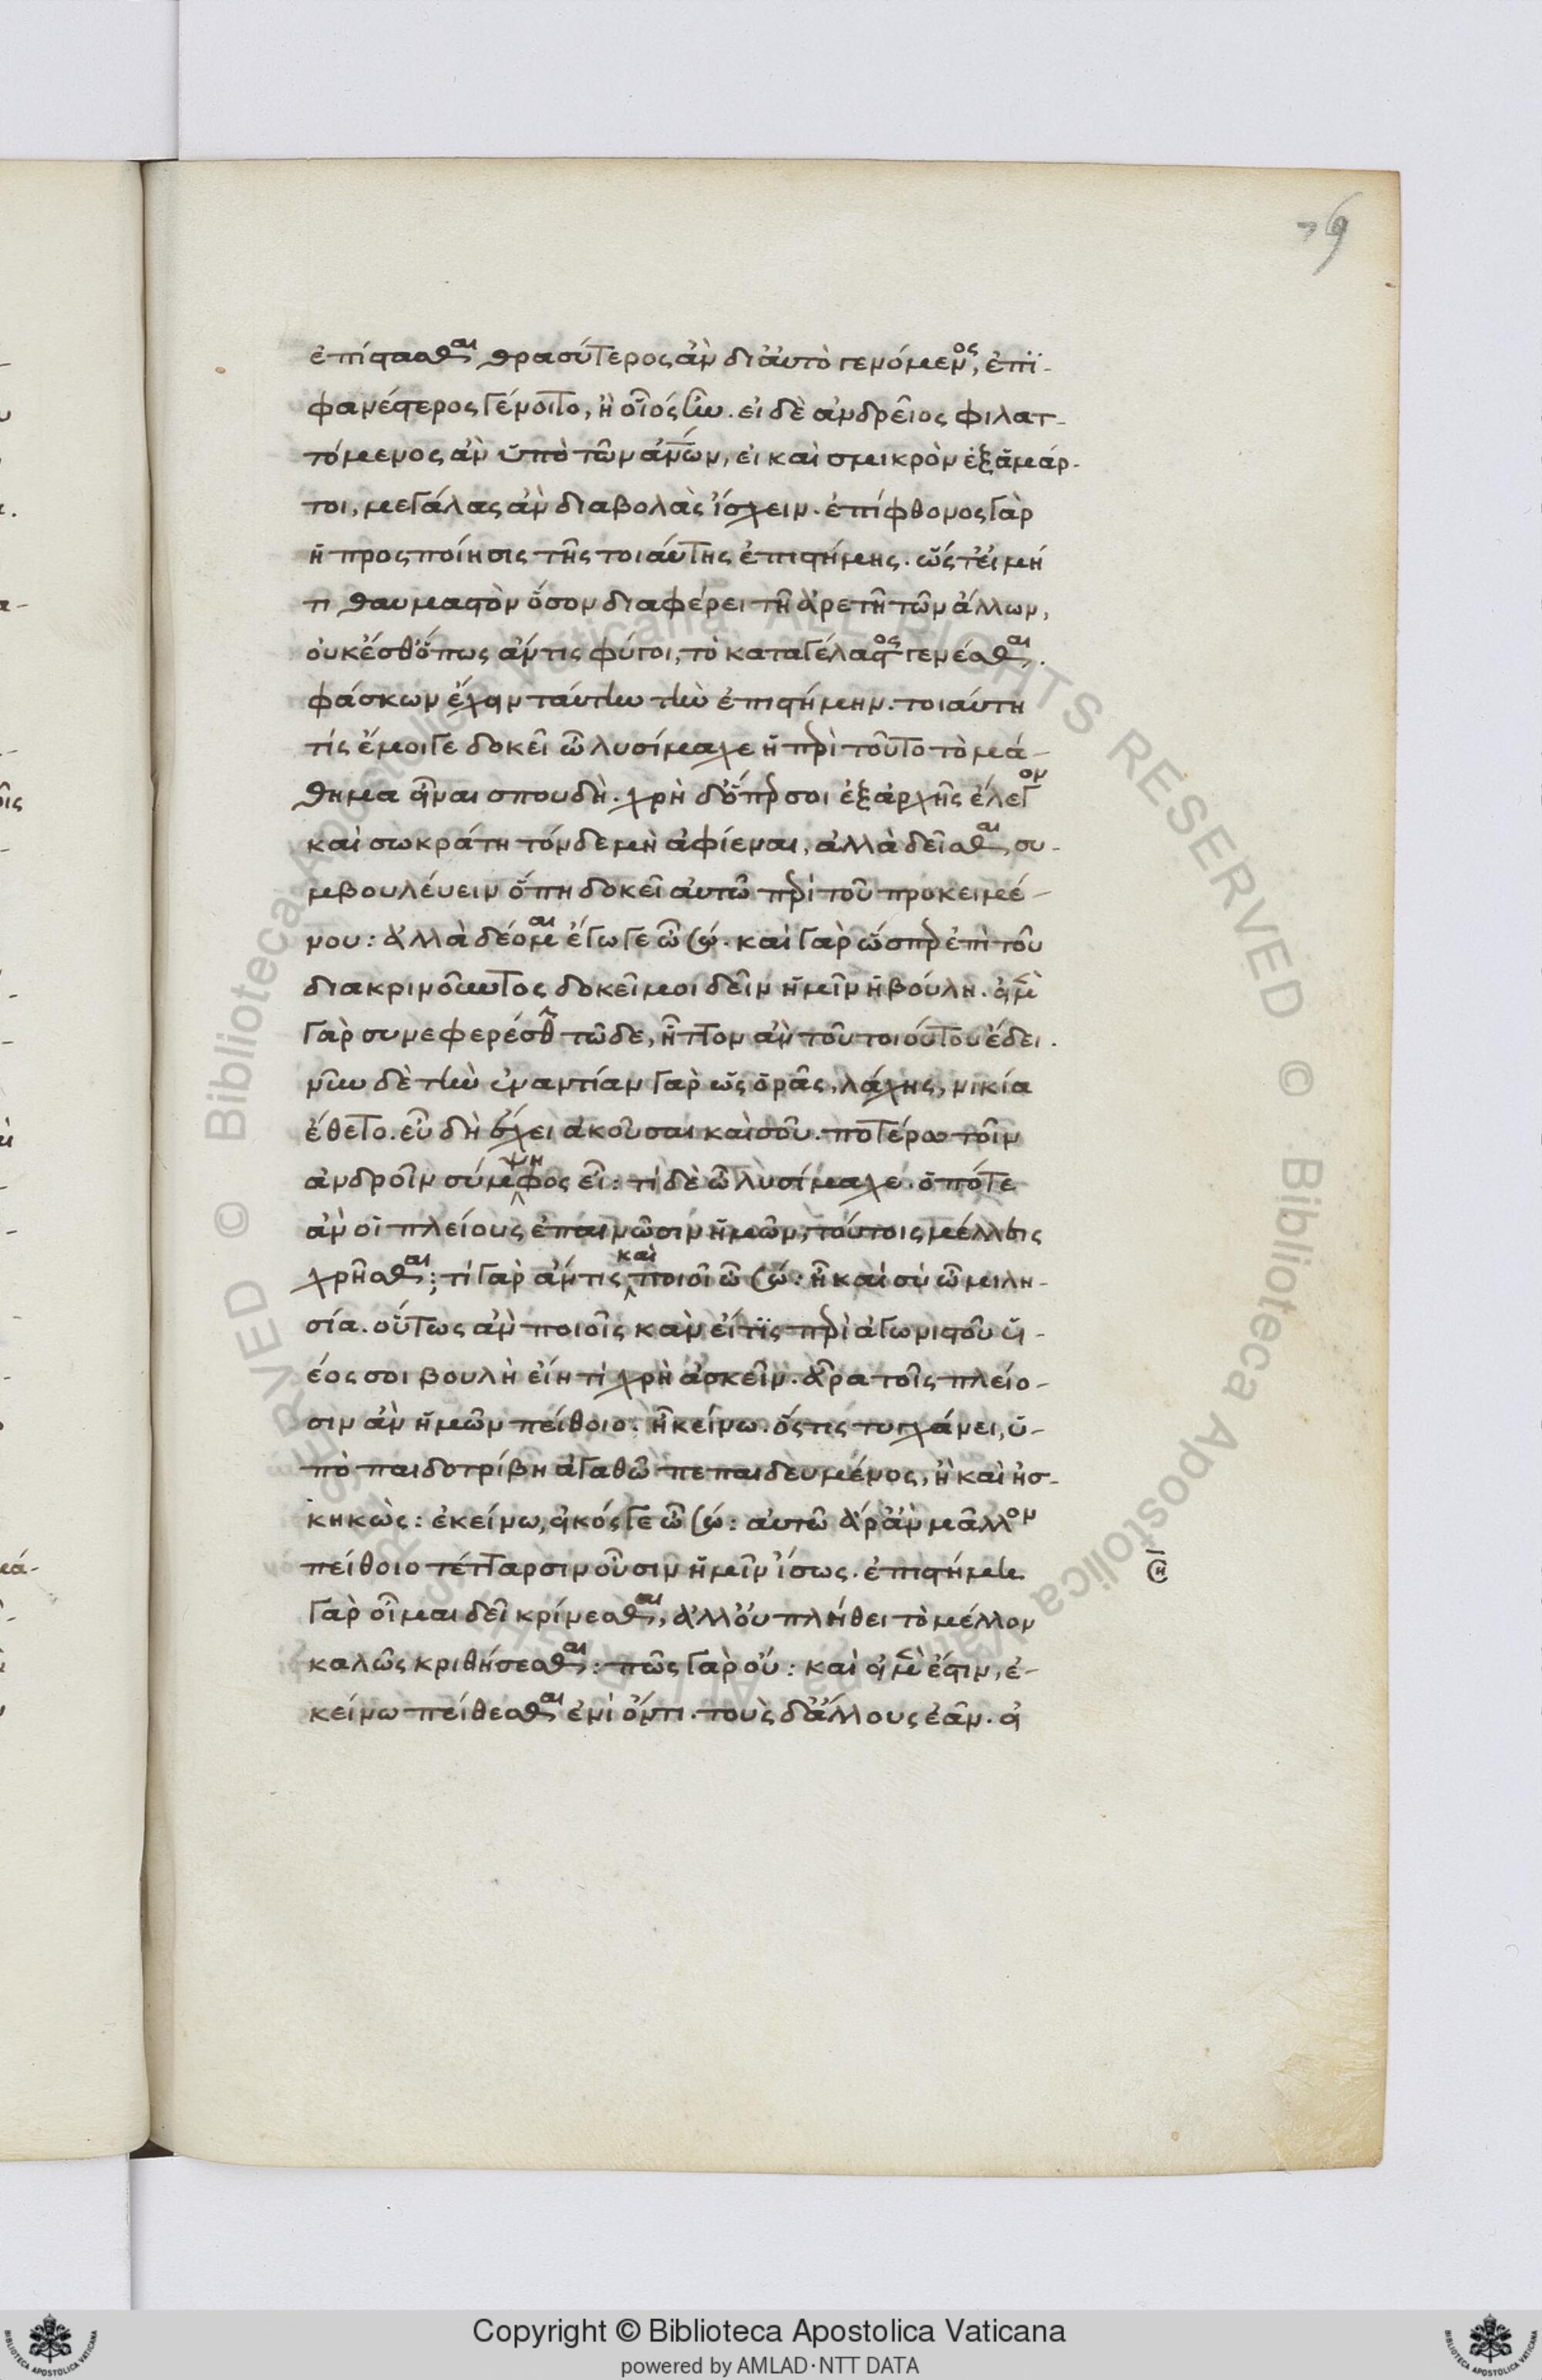 79
ἐπίστασθαι θρασύτερος ἂν δι' αὐτὸ γενόμενος, ἐπι-
φανέστερος γένοιτο, ἢ οἷος ἦν. εἰ δὲ ἀνδρεῖος φιλατ-
τόμενος ἂν ὑπὸ τῶν ἀνων, εἰ καὶ σμικρὸν ἐξαμάρ-
τοι, μεγάλας ἂν διαβολὰς ἴσχειν. ἐπίφθονος γὰρ
ἡ προςποίησις τῆς τοιαύτης ἐπιστήμης. ὥςτ' εἰ μή
τι θαυμαστὸν ὅσον διαφέρει τῇ ἀρετῇ τῶν ἄλλων,
οὐκ ἔσθ' ὅπως ἄν τις φύγοι, τὸ καταγέλαστος γενέσθαι.
φάσκων ἔχειν ταύτην τὴν ἐπιστήμην. τοιαύτη
τίς ἔμοιγε δοκεῖ ὦ λυσίμαχε ἡ περὶ τοῦτο τὸ μά-
θημα εἶναι σπουδὴ. χρὴ δ' ὅπερ σοι ἐξ ἀρχῆς ἔλεγον
καὶ σωκράτη τόνδε μὴ ἀφίεναι, ἀλλὰ δεῖσθαι, συ-
μβουλέυειν ὅπη δοκεῖ αὐτῶ περὶ τοῦ προκειμέ-
νου: ἀλλὰ δέομαι ἔγωγε ὦ σώ. καὶ γὰρ ὥσπερ ἐπὶ τοῦ
διακρινοῦντος δοκεῖ μοι δεῖν ἡμῖν ἡ βούλη. εἰ μὲν
γὰρ συνεφερέσθην τῶδε, ἧττον ἂν τοῦ τοιούτου ἔδει.
νῦν δὲ τὴν ἐναντίαν γὰρ ὡς ὁρᾶς, λάχης, νικία
ἔθετο. εὖ δὴ ἔχει ἀκοῦσαι καὶ σοῦ. ποτέρω τοῖν
ἀνδροῖν σύμψηφος εἶ: τί δὲ ὦ λυσίμαχε. ὁπότε
ἂν οἱ πλείους ἐπαινῶσιν ἡμῶν, τούτοις μέλλεις
χρῆσθαι; τί γὰρ ἄν τις καὶ ποιοῖ ὦ σώ: ἦ καὶ σὺ ὦ μιλη-
σία. οὕτως ἂν ποιοῖς κἂν εἴ τις περὶ ἀγωνιστοῦ υἱ-
έος σοι βουλὴ εἴη τί χρὴ ἀσκεῖν. ἆρα τοῖς πλείο-
σιν ἂν ἡμῶν πείθοιο. ἢ κείνω. ὅςτις τυγχάνει, ὑ-
πὸ παιδοτρίβη ἀγαθῶ πεπαιδευμένος, ἢ καὶ ἠσ-
κηκὼς: ἐκείνω, εἰκός γε ὦ σώ: αὐτῶ ἄρ' ἂν μᾶλλον
πείθοιο τέτταρσιν οὖσιν ἡμῖν ἴσως. ἐπιστήμη
γὰρ οἶμαι δεῖ κρίνεσθαι, ἀλλ' οὐ πλήθει τὸ μέλλον
καλῶς κριθήσεσθαι: πῶς γὰρ οὔ: καὶ εἰ μὲν ἔστιν, ἐ-
κείνω πείθεσθαι ἑνὶ ὄντι. τοὺς δ' ἄλλους ἐᾶν. εἰ
Copyright © Biblioteca Apostolica Vaticana
powered by AMLAD·NTT DATA